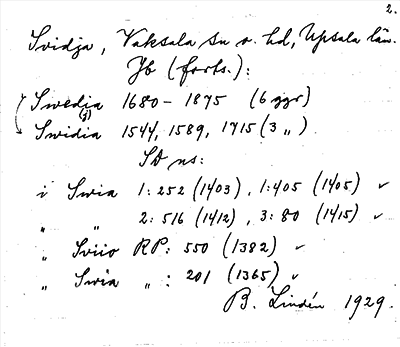 2.
Svidja, Vaksala sn o. hd, Upsala län.
Jb (forts.):
Swedia 1680 - 1875 (6 ggr)
(j)
Swidia 1544, 1589, 1715 (3 „ )
SD ns:
i Swia 1: 252 (1403), 1: 405 (1405) ✓
„ „ 2: 516 (1412), 3: 80 (1415) ✓
„ Sviio RP: 550 (1382) ✓
„ Swia „ : 201 (1365) ✓
B. Lindén 1929.